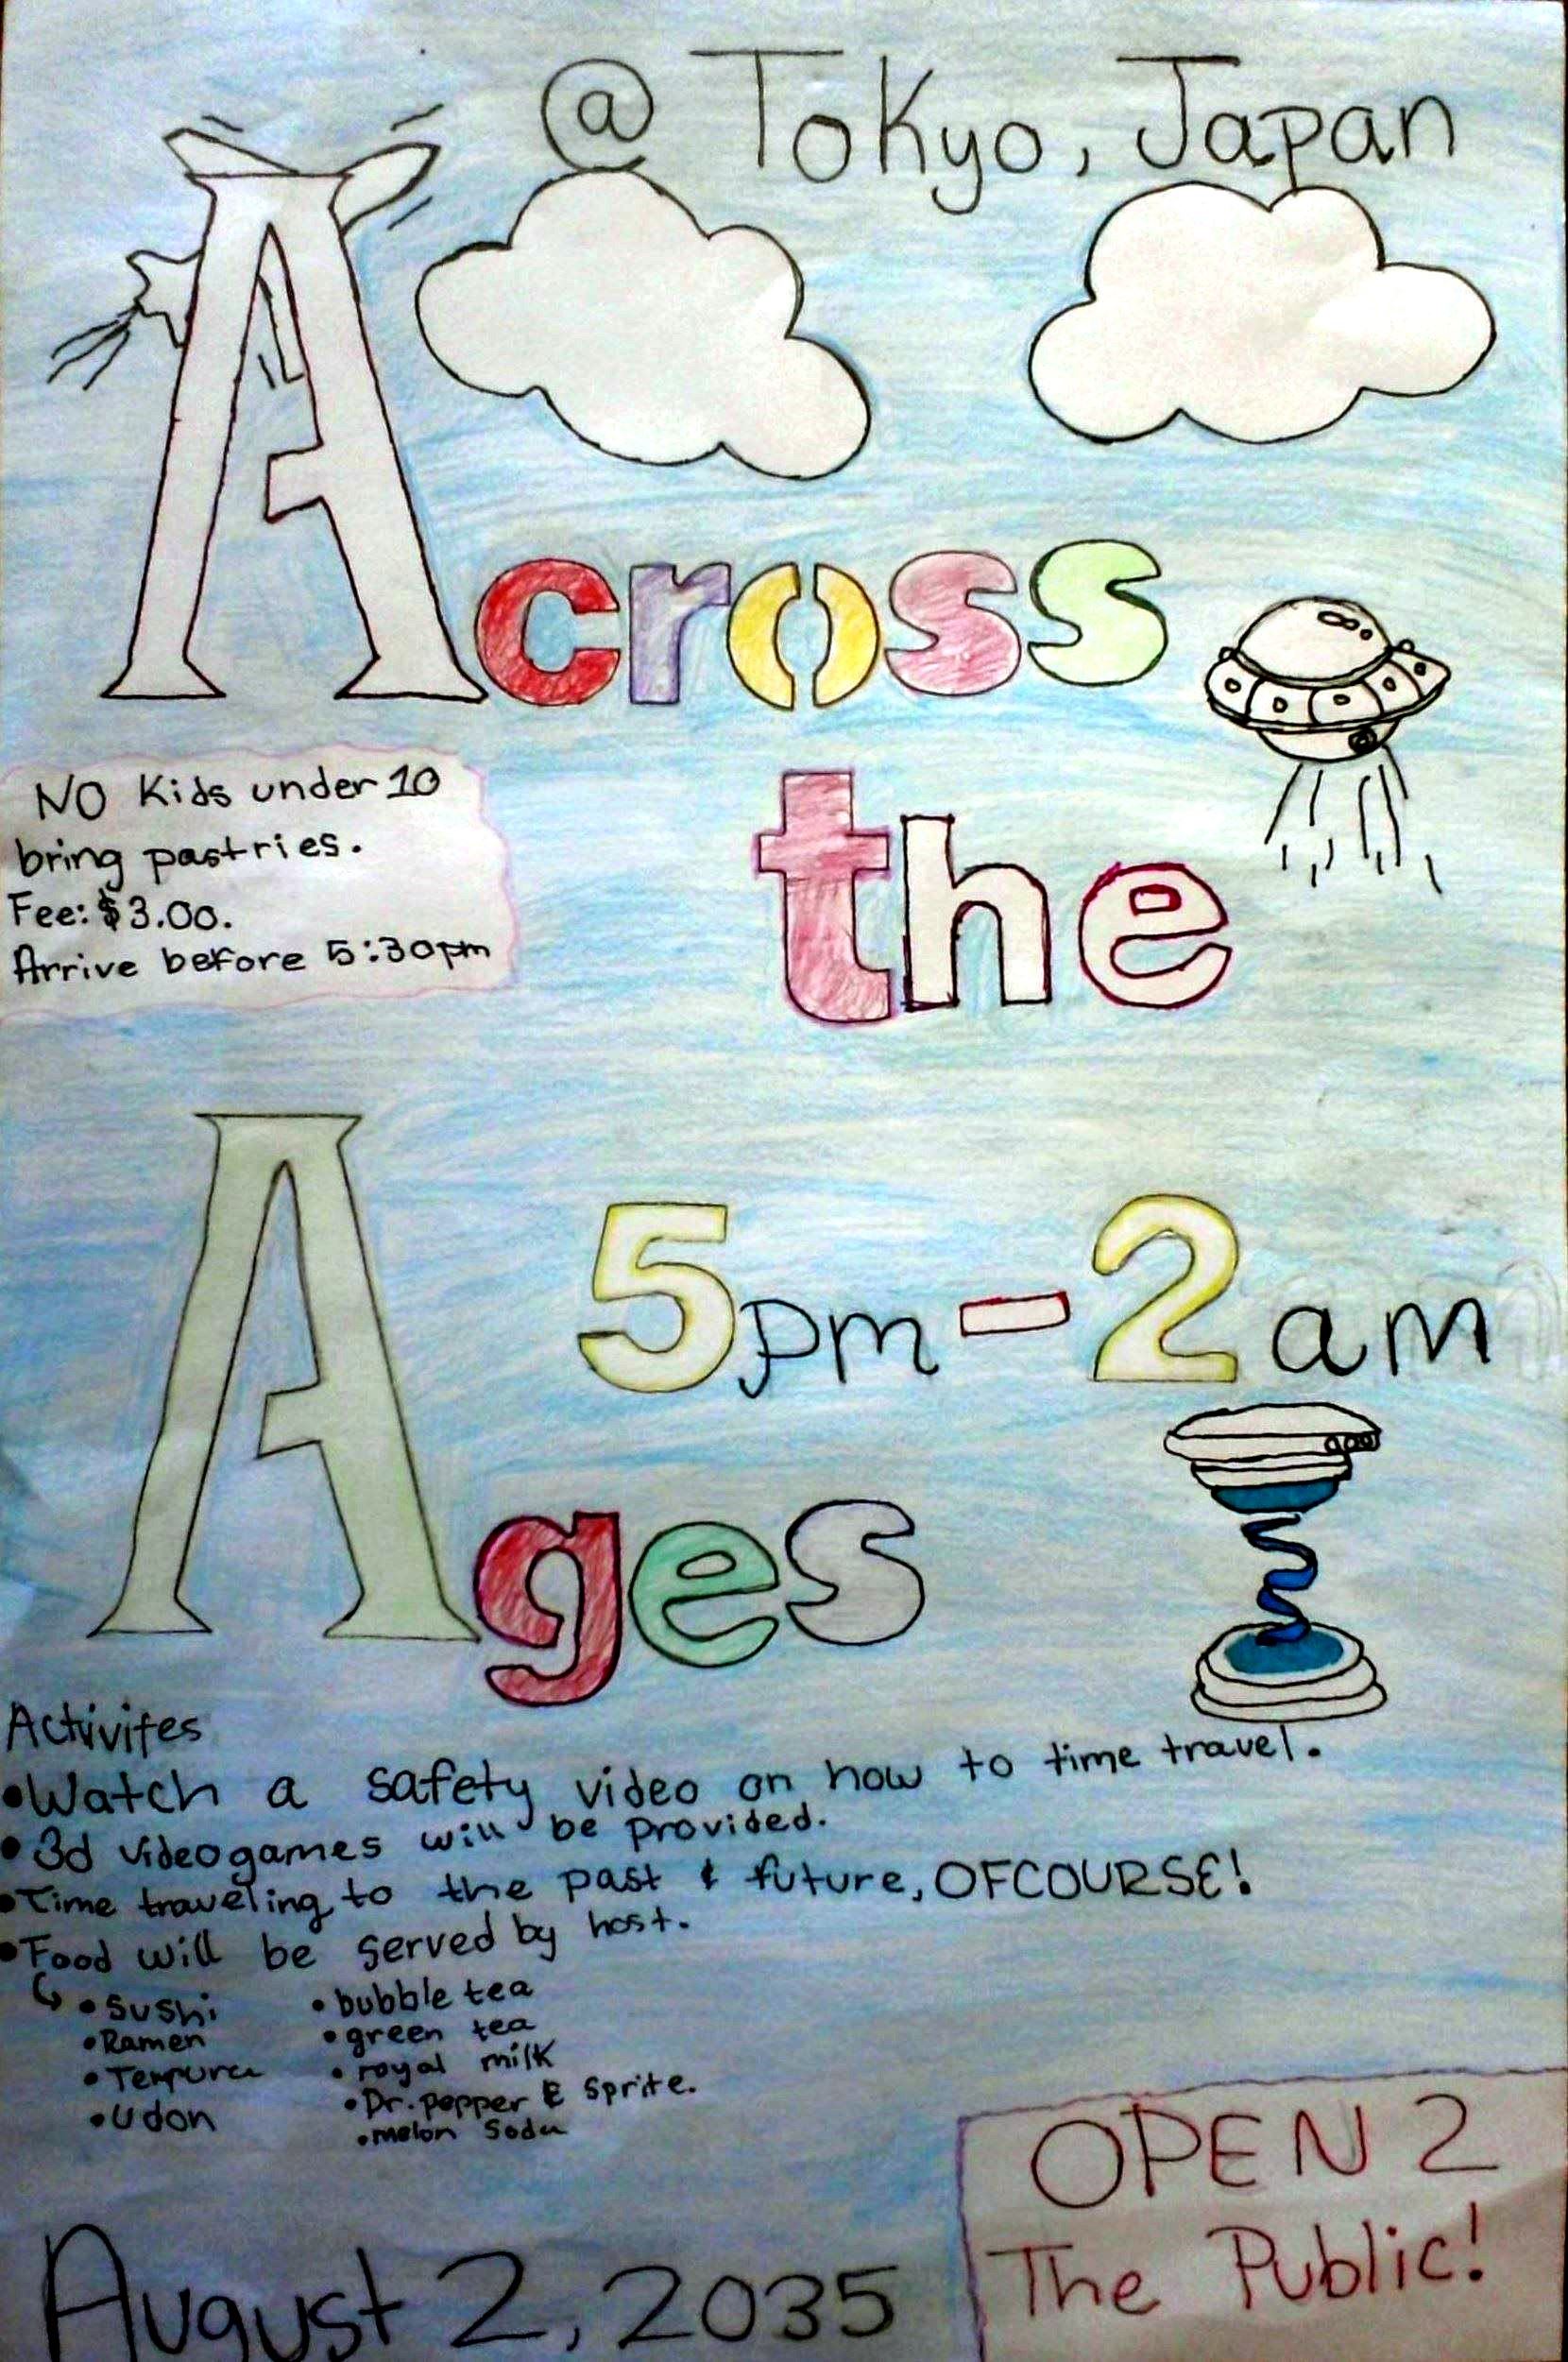 @ Tokyo, Japan
Across
NO Kids under 10
bring pastries.
Fee: $3.00.
Arrive before 5:30pm
the
5pm-2am
Ages
Activites
•Watch a safety video on how to time travel.
•3d videogames will be provided.
•Time traveling to the past & future, OFCOURSE!
•Food will be served by host.
•Sushi
•Ramen
•Tempura
•Udon
•bubble tea
•green tea
•royal milk
•Dr. pepper & Sprite.
•melon Soda
OPEN 2
The Public!
August 2, 2035